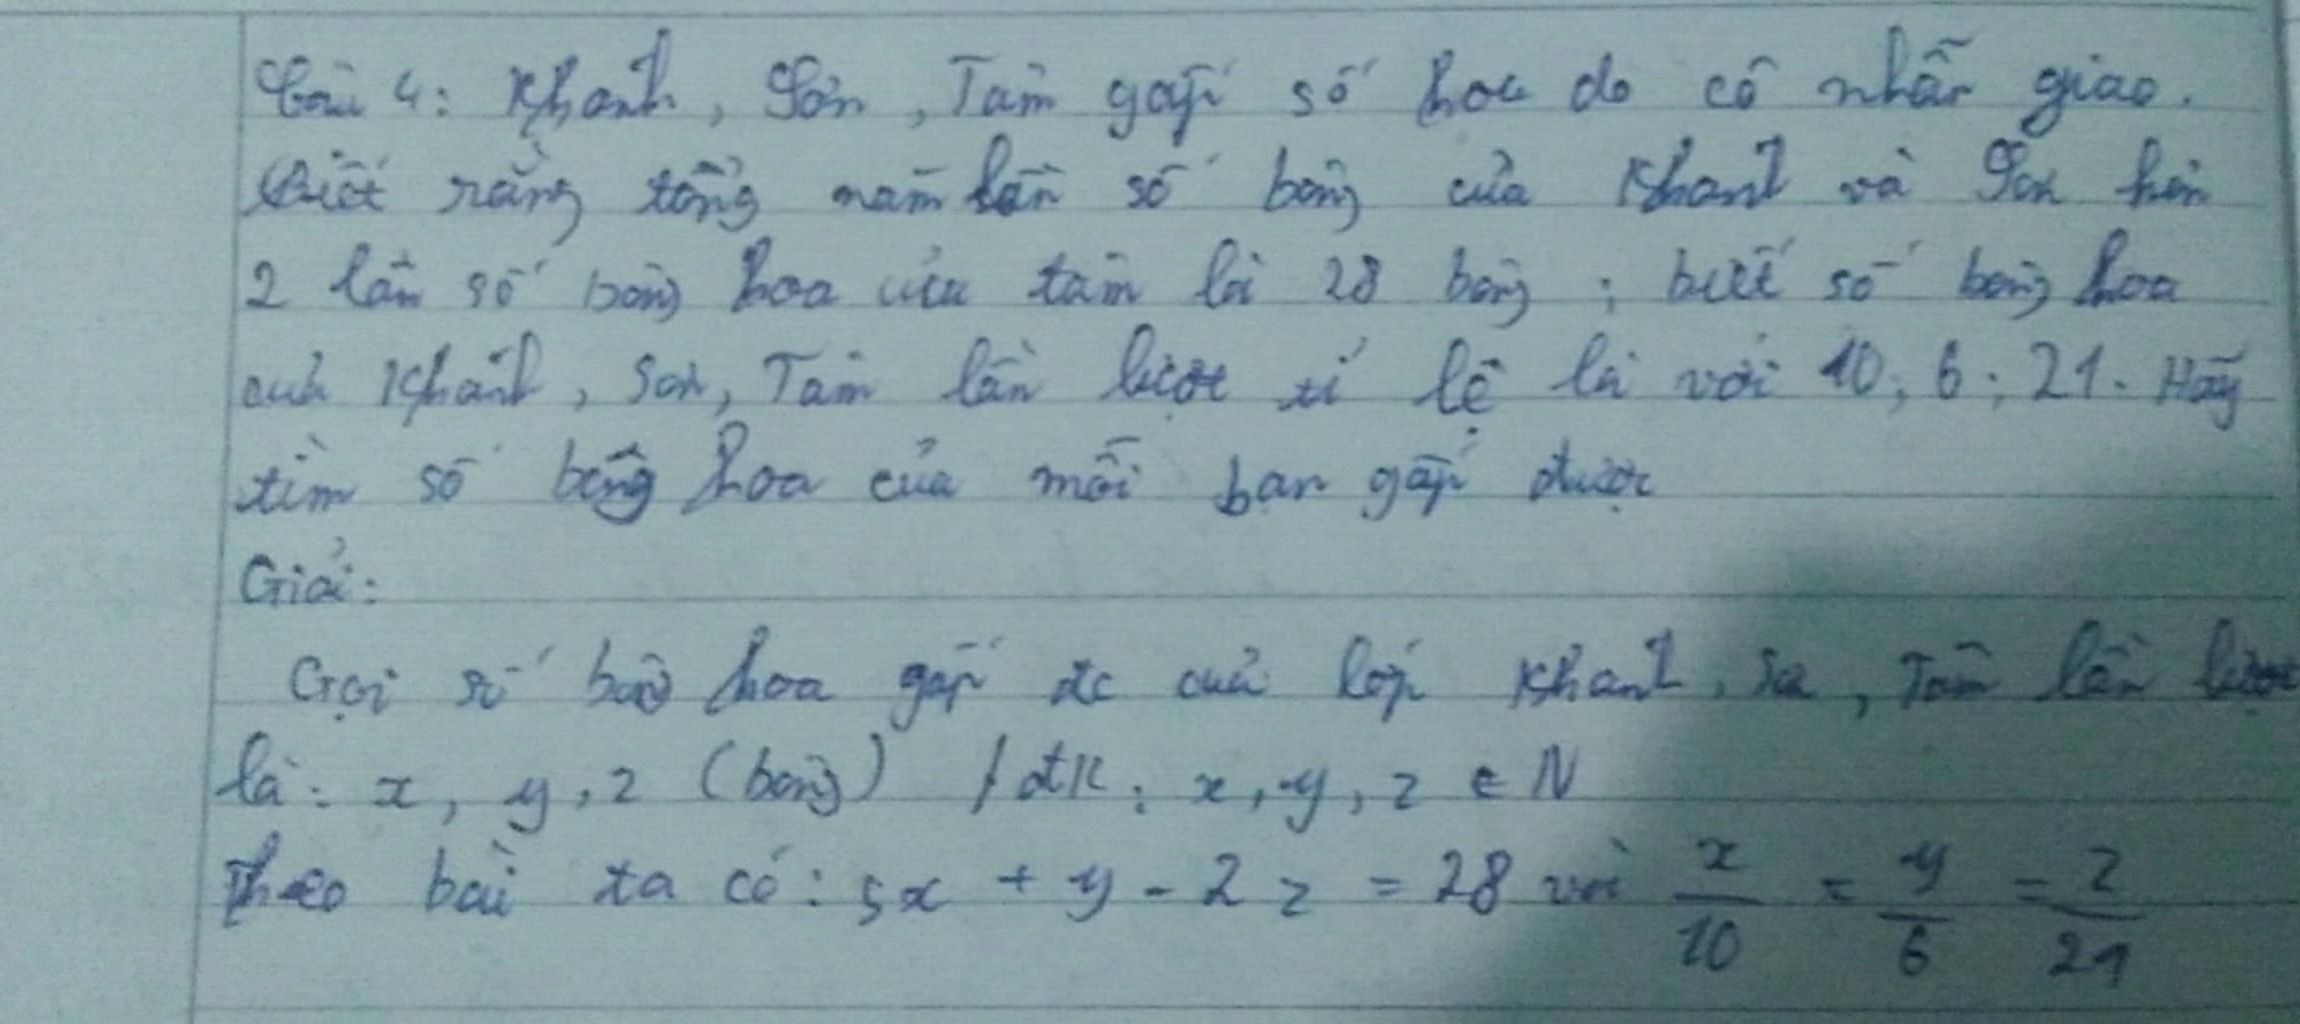 Câu 4: Khanh, Sơn, Tâm gấp số hoa do cô nhân giao.
Biết rằng tổng năm lần số bông của Khanh và Sơn hơn
2 lần số bông hoa của tâm là 28 bông; biết số bông hoa
của Khanh, Sơn, Tâm lần lượt tỉ lệ là với 10; 6; 21. Hãy
tìm số bông hoa của mỗi bạn gấp được
Giải:
Gọi số bông hoa gấp đc của lớp Khanh, Sơn, Tâm lần lượt
là: x, y, z (bông) / đk: x, y, z ∈ N
Theo bài ta có: 5x + y - 2z = 28 với x/10 = y/6 = z/21